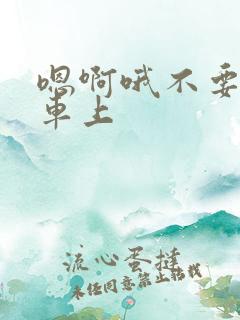 嗯啊哦不要
車上
流心蛋撻
未经同意禁止转载